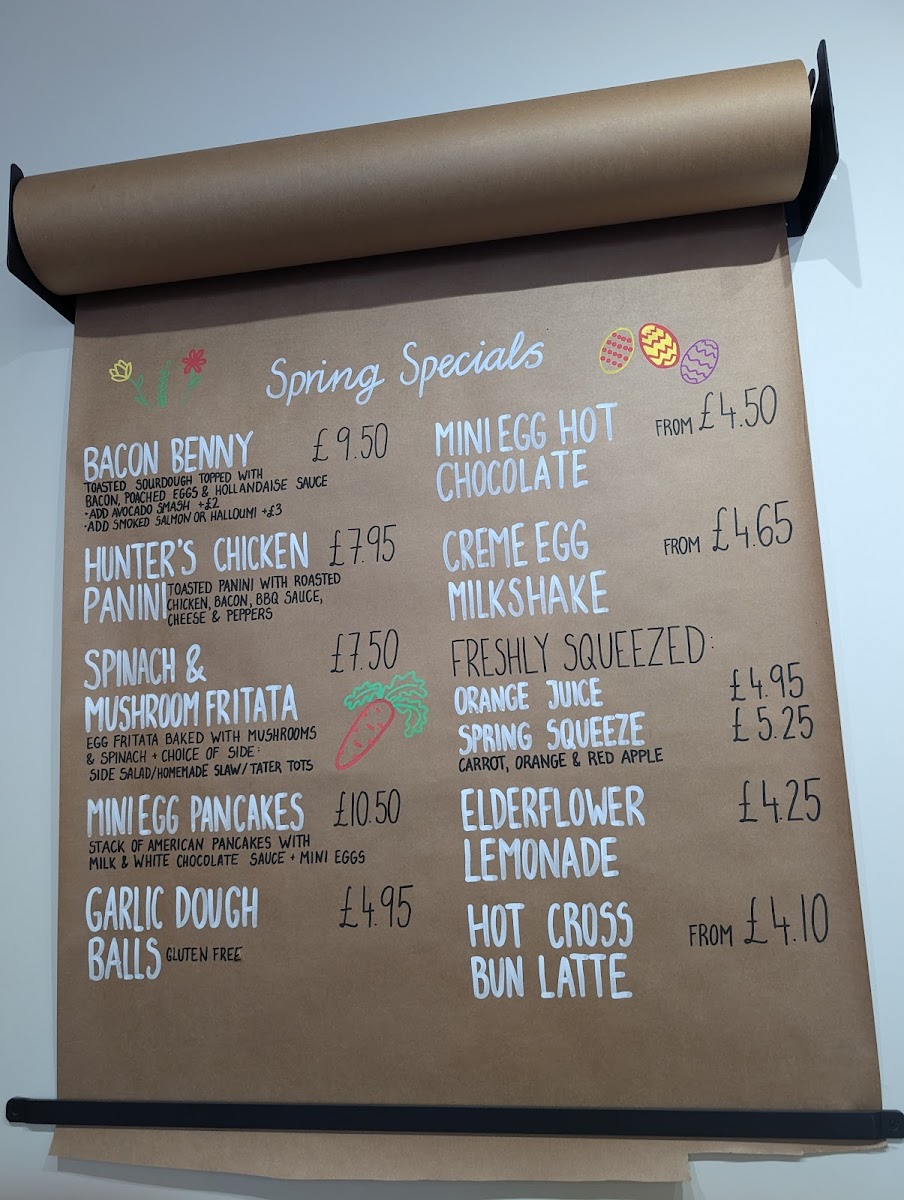 Spring Specials
BACON BENNY £9.50
TOASTED SOURDOUGH TOPPED WITH
BACON, POACHED EGGS & HOLLANDAISE SAUCE
·ADD AVOCADO SMASH +£2
·ADD SMOKED SALMON OR HALLOUMI +£3
HUNTER'S CHICKEN £7.95
PANINI
TOASTED PANINI WITH ROASTED
CHICKEN, BACON, BBQ SAUCE,
CHEESE & PEPPERS
SPINACH & £7.50
MUSHROOM FRITATA
EGG FRITATA BAKED WITH MUSHROOMS
& SPINACH + CHOICE OF SIDE:
SIDE SALAD/HOMEMADE SLAW/TATER TOTS
MINI EGG PANCAKES £10.50
STACK OF AMERICAN PANCAKES WITH
MILK & WHITE CHOCOLATE SAUCE + MINI EGGS
GARLIC DOUGH £4.95
BALLS GLUTEN FREE
MINI EGG HOT FROM £4.50
CHOCOLATE
CREME EGG FROM £4.65
MILKSHAKE
FRESHLY SQUEEZED:
ORANGE JUICE £4.95
SPRING SQUEEZE £5.25
CARROT, ORANGE & RED APPLE
ELDERFLOWER £4.25
LEMONADE
HOT CROSS FROM £4.10
BUN LATTE